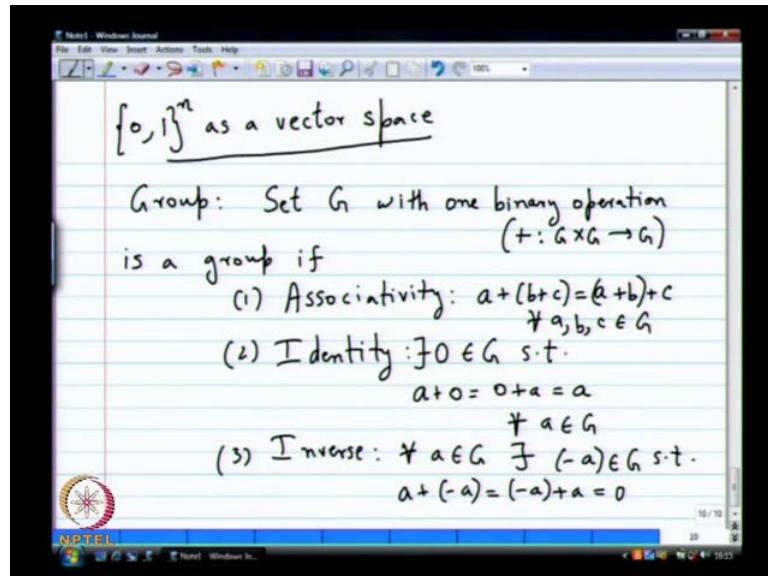 Note1 - Windows Journal
File Edit View Insert Actions Tools Help
100%
{0,1}ⁿ as a vector space
Group: Set G with one binary operation
(+: G×G → G)
is a group if
(1) Associativity: a+(b+c)=(a+b)+c
∀ a,b,c ∈ G
(2) Identity: ∃0 ∈ G s.t.
a+0 = 0+a = a
∀ a ∈ G
(3) Inverse: ∀ a ∈ G ∃ (-a) ∈ G s.t.
a+(-a) = (-a)+a = 0
10/10
10
NPTEL
Note1 - Windows Jo...
16:15